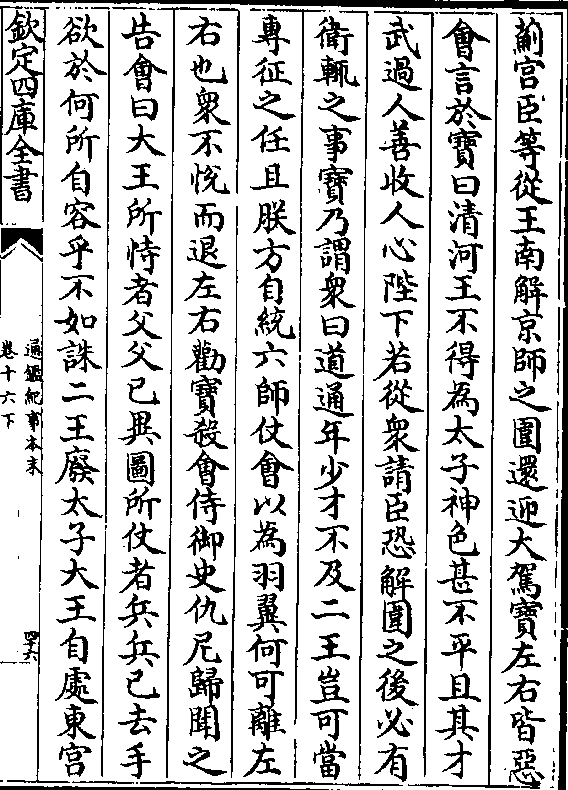 薊宫臣等從王南解京師之圍還迎大駕寶左右皆惡
會言於寶曰清河王不得為太子神色甚不平且其才
武過人善收人心陛下若從衆請臣恐解圍之後必有
衛輒之事寶乃謂衆曰道通年少才不及二王豈可當
專征之任且朕方自統六師仗會以為羽翼何可離左
右也衆不恱而退左右勸寶殺會侍御史仇尼歸聞之
告會曰大王所恃者父父已異圖所仗者兵兵已去手
欲於何所自容乎不如誅二王廢太子大王自處東宫
欽定四庫全書
通鑑紀事本末
卷十六下
四六